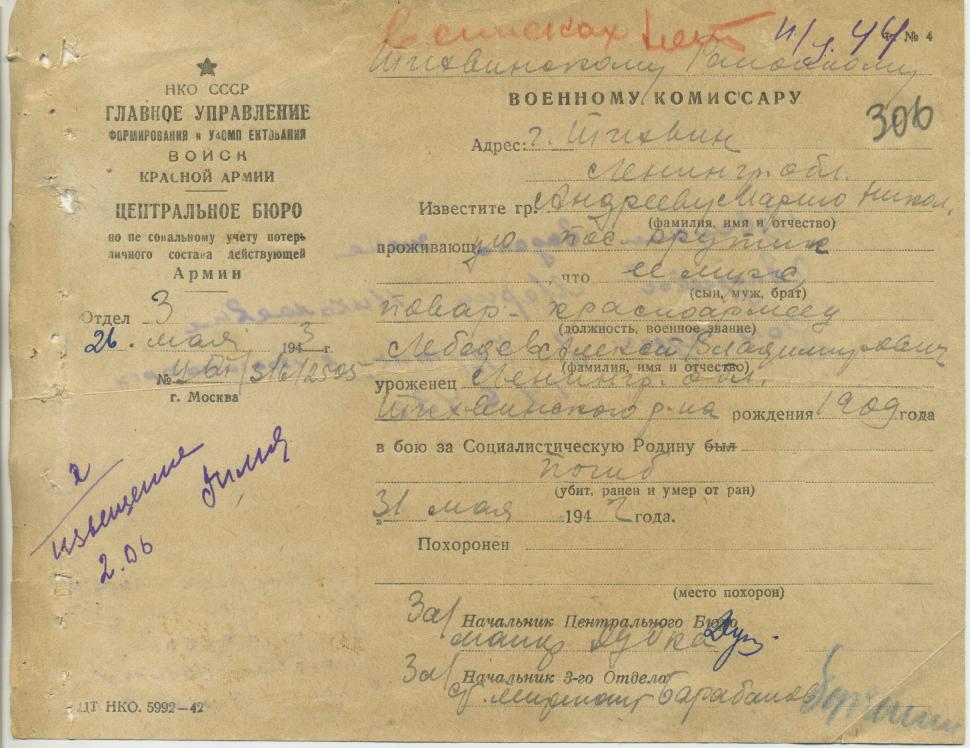 в списках нет
Ф. № 4
Тихвинскому Районному
ВОЕННОМУ КОМИССАРУ
306
НКО СССР
ГЛАВНОЕ УПРАВЛЕНИЕ
ФОРМИРОВАНИЯ и УКОМП ЕКТОВАНИЯ
ВОЙСК
КРАСНОЙ АРМИИ
ЦЕНТРАЛЬНОЕ БЮРО
по пе сональному учету потерь
личного состава действующей
Армии
Отдел 3
26. мая 1943 г.
№
г. Москва
2
извещение
2.06
Адрес: г. Тихвин
Ленингр. обл.
Известите гр. Андрееву Марию Никол.
(фамилия, имя и отчество)
проживающую пос.
что ее муж,
(сын, муж, брат)
повар - красноармеец
(должность, военное звание)
Лебедев Алексей Владимирович
(фамилия, имя и отчество)
уроженец Ленингр. обл.
Тихвинского р-на рождения 1909 года
в бою за Социалистическую Родину был
погиб
(убит, ранен и умер от ран)
31 мая 1942 года.
Похоронен
(место похорон)
За/ Начальник Центрального Бюро
майор Дубка
За/ Начальник 3-го Отдела
Барабанов
ЦТ НКО. 5992—42